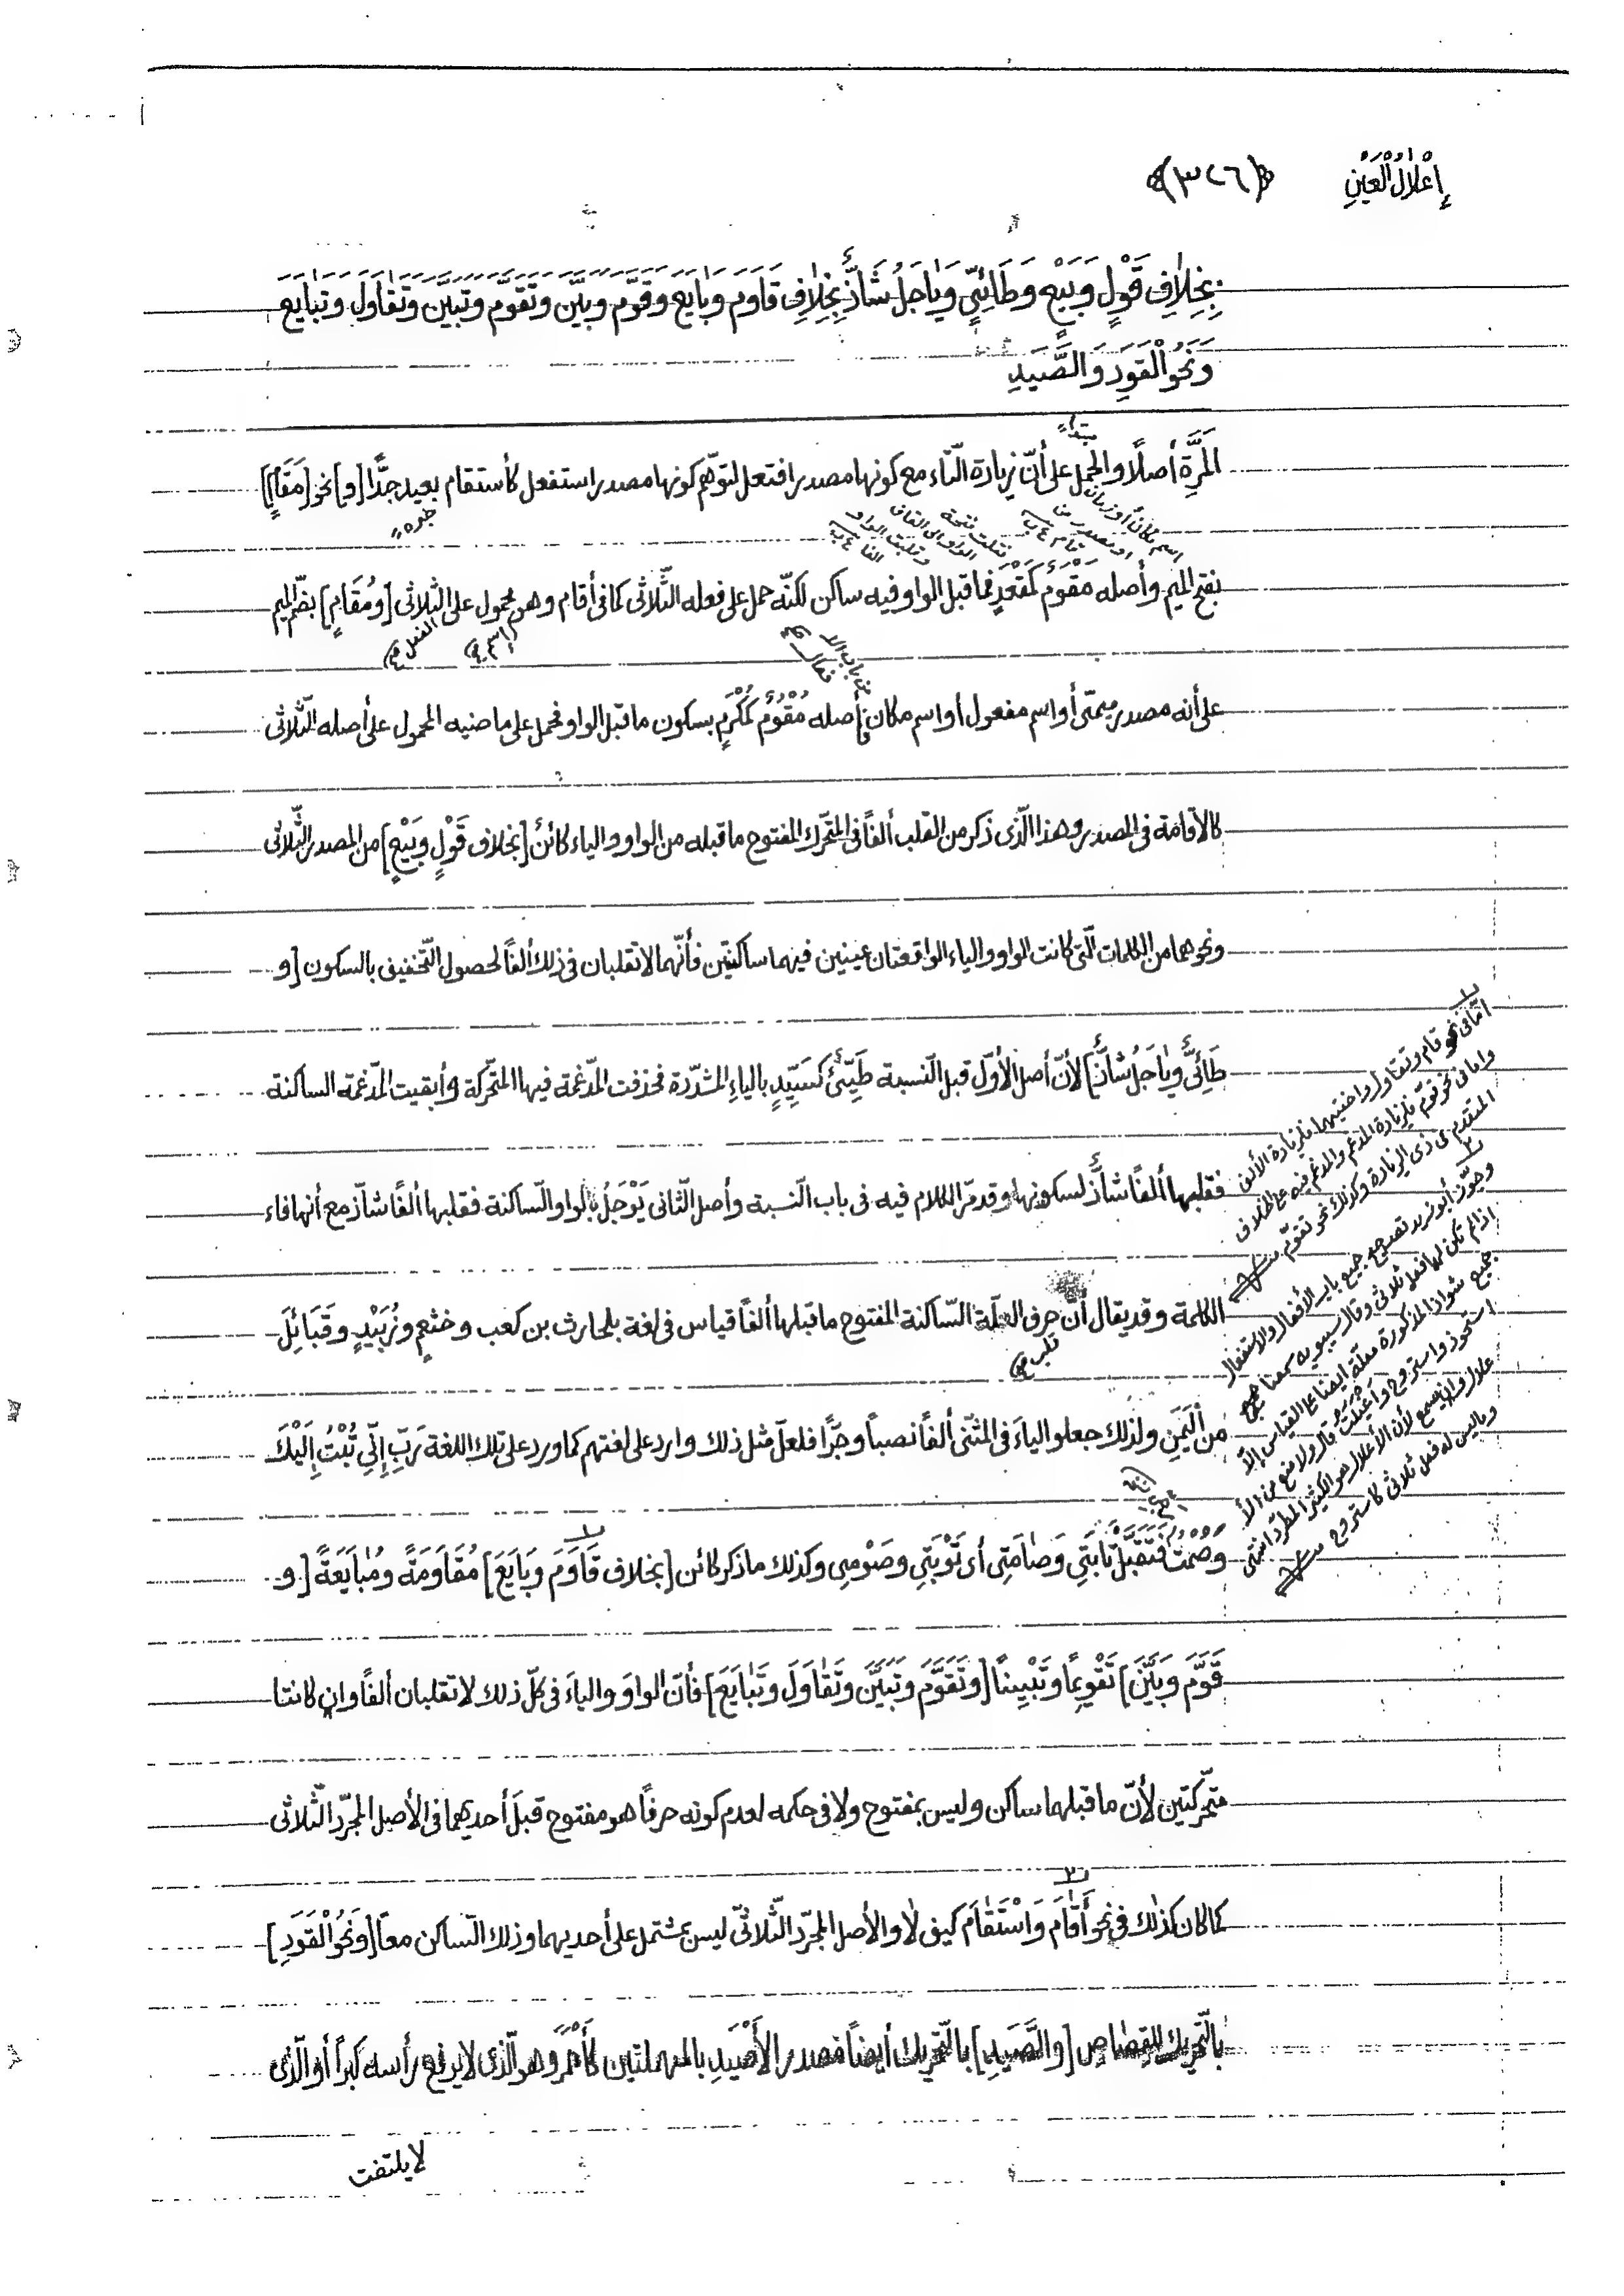 إِعْلَالُ الْعَيْنِ
﴿٣٢٦﴾
بِخِلَافِ قَوْلٍ وَبَيْعٍ وَطَائِيٍّ وَيَاجَلُ شَاذٌّ بِخِلَافِ قَاوَمَ وَبَايَعَ وَقَوَّمَ وَبَيَّنَ وَتَقَوَّمَ وَتَبَيَّنَ وَتَقَاوَلَ وَتَبَايَعَ
وَنَحْوُ الْقَوَدِ وَالصَّيَدِ
المَرَّةِ أصلًا والحمل على أنّ زيادة التّاء مع كونها مصدر افتعل لتوهّم كونها مصدر استفعل كأستقام بعيد جدًّا [و] نحو [مَقَامٍ]
مبتداء
خبره
اسم مكان أو زمان
او مصدر من
قام ع ب
نقلت فتحة
الواو الى القاف
وقلبت الواو
الفا ع ب
بفتح الميم وأصله مَقْوَمٌ كَمَقْعَدٍ فما قبل الواو فيه ساكن لكنّه حمل على فعله الثّلاثى كما فى أقام وهو محمول على الثّلاثى [وَمُقَامٍ] بضمّ الميم
الفعل
على أنه مصدر ميمّى أو اسم مفعول أو اسم مكان فأصله مُقْوَمٌ كَمُكْرَمٍ بسكون ما قبل الواو فحمل على ماضيه المحمول على أصله الثّلاثى
كالأقامة فى المصدر وهذا الّذى ذكر من القلب ألفًا فى المتحّرك المفتوح ما قبله من الواو والياء كائنٌ [بخلاف قَوْلٍ وبَيْعٍ] من المصدر الثّلاثى
ونحوهما من الكلمات الّتى كانت الواو والياء الواقعتان عينين فيهما ساكنتين فأنّهما لا تقلبان فى ذلك ألفًا لحصول التّخفيف بالسكون [و
طَائِىٌّ ويَاجَلُ شَاذٌّ] لأنّ أصل الأوّل قبل النّسبة طَيِّئٌ كسَيِّدٍ بالياءِ المشدّدة فحذفت المدّغمة فيها المتحّركة وأبقيت المدّغمة الساكنة
فقلبها ألفًا شاذّ لسكونها وقد مرّ الكلام فيه فى باب النّسبة وأصل الثّانى يَوْجَلُ بالواو السّاكنة فقلبها ألفًا شاذّ مع أنها فاء
الكلمة وقد يقال أنّ حرف العلّة السّاكنة المفتوح ما قبلها ألفًا قياس فى لغة بلحارث بن كعب وخثعمٍ وزُبَيْدٍ وقَبَائِلَ
قلب
من اَلْيَمَنِ ولذلك جعلوا الياءَ فى المثنّى ألفًا نصبًا وجّرًا فلعلّ مثل ذلك وارد على لغتهم كما ورد على تلك اللغة رَبِّ إِنّي تُبْتُ إِلَيْكَ
وَصُمْتُ فَتَقَبَّلْ تَابَتِي وَصَامَتِي أى تَوْبَتِي وصَوْمِى وكذلك ما ذكر كائن [بخلاف قَاوَمَ وبَايَعَ] مُقَاوَمَةً ومُبَايَعَةً [و
قَوَّمَ وبَيَّنَ] تَقْوِيمًا وتَبْيِينًا [وتَقَوَّمَ وتَبَيَّنَ وتَقَاوَلَ وتَبَايَعَ] فأنّ الواوَ والياءَ فى كلّ ذلك لا تقلبان ألفًا وان كانتا
متحّركتين لأنّ ما قبلهما ساكن وليس بمفتوح ولا فى حكمه لعدم كونه حرفًا هو مفتوح قبل أحديهما فى الأصل المجرّد الثّلاثى
كما كان كذلك فى نحو أَقَامَ وَاسْتَقَامَ كيف لا والأصل المجرّد الثّلاثىّ ليس بمشتمل على أحديهما وذلك السّاكن معًا [وَنَحْوُ الْقَوَدِ]
بالتّحريك للقصاص [والصَّيَدِ] بالتّحريك أيضًا مصدر الأَصْيَدِ بالمهملتين كأَحْمَرَ وهو الّذى لا يرفع رأسه كبرًا أو الّذى
لا يلتفت
امّا فى نحو قام وتقاول واختيهما فلزيادة الألف
وامّا فى نحو قوّم فلزيادة المدغم والمدغم فيه على الخلاف
المتقدم فى ذى الزيادة وكذلك نحو تقوّم
وجوّز أبو زيد تصحيح جميع باب الأفعال والأستفعال
اذا لم تكن لها فعل ثلاثى وقال سيبويه سمعنا جميع
جميع شواذ المذكورة معلّة ايضا على القياس إلّا
استحوذ واستروح وأغيلت قال ولا منع من الأ
علال وان لم يسمع لأنّ الأعلال هو الكثير المطرد انتهى
وما ليس له فعل ثلاثى كاستروح